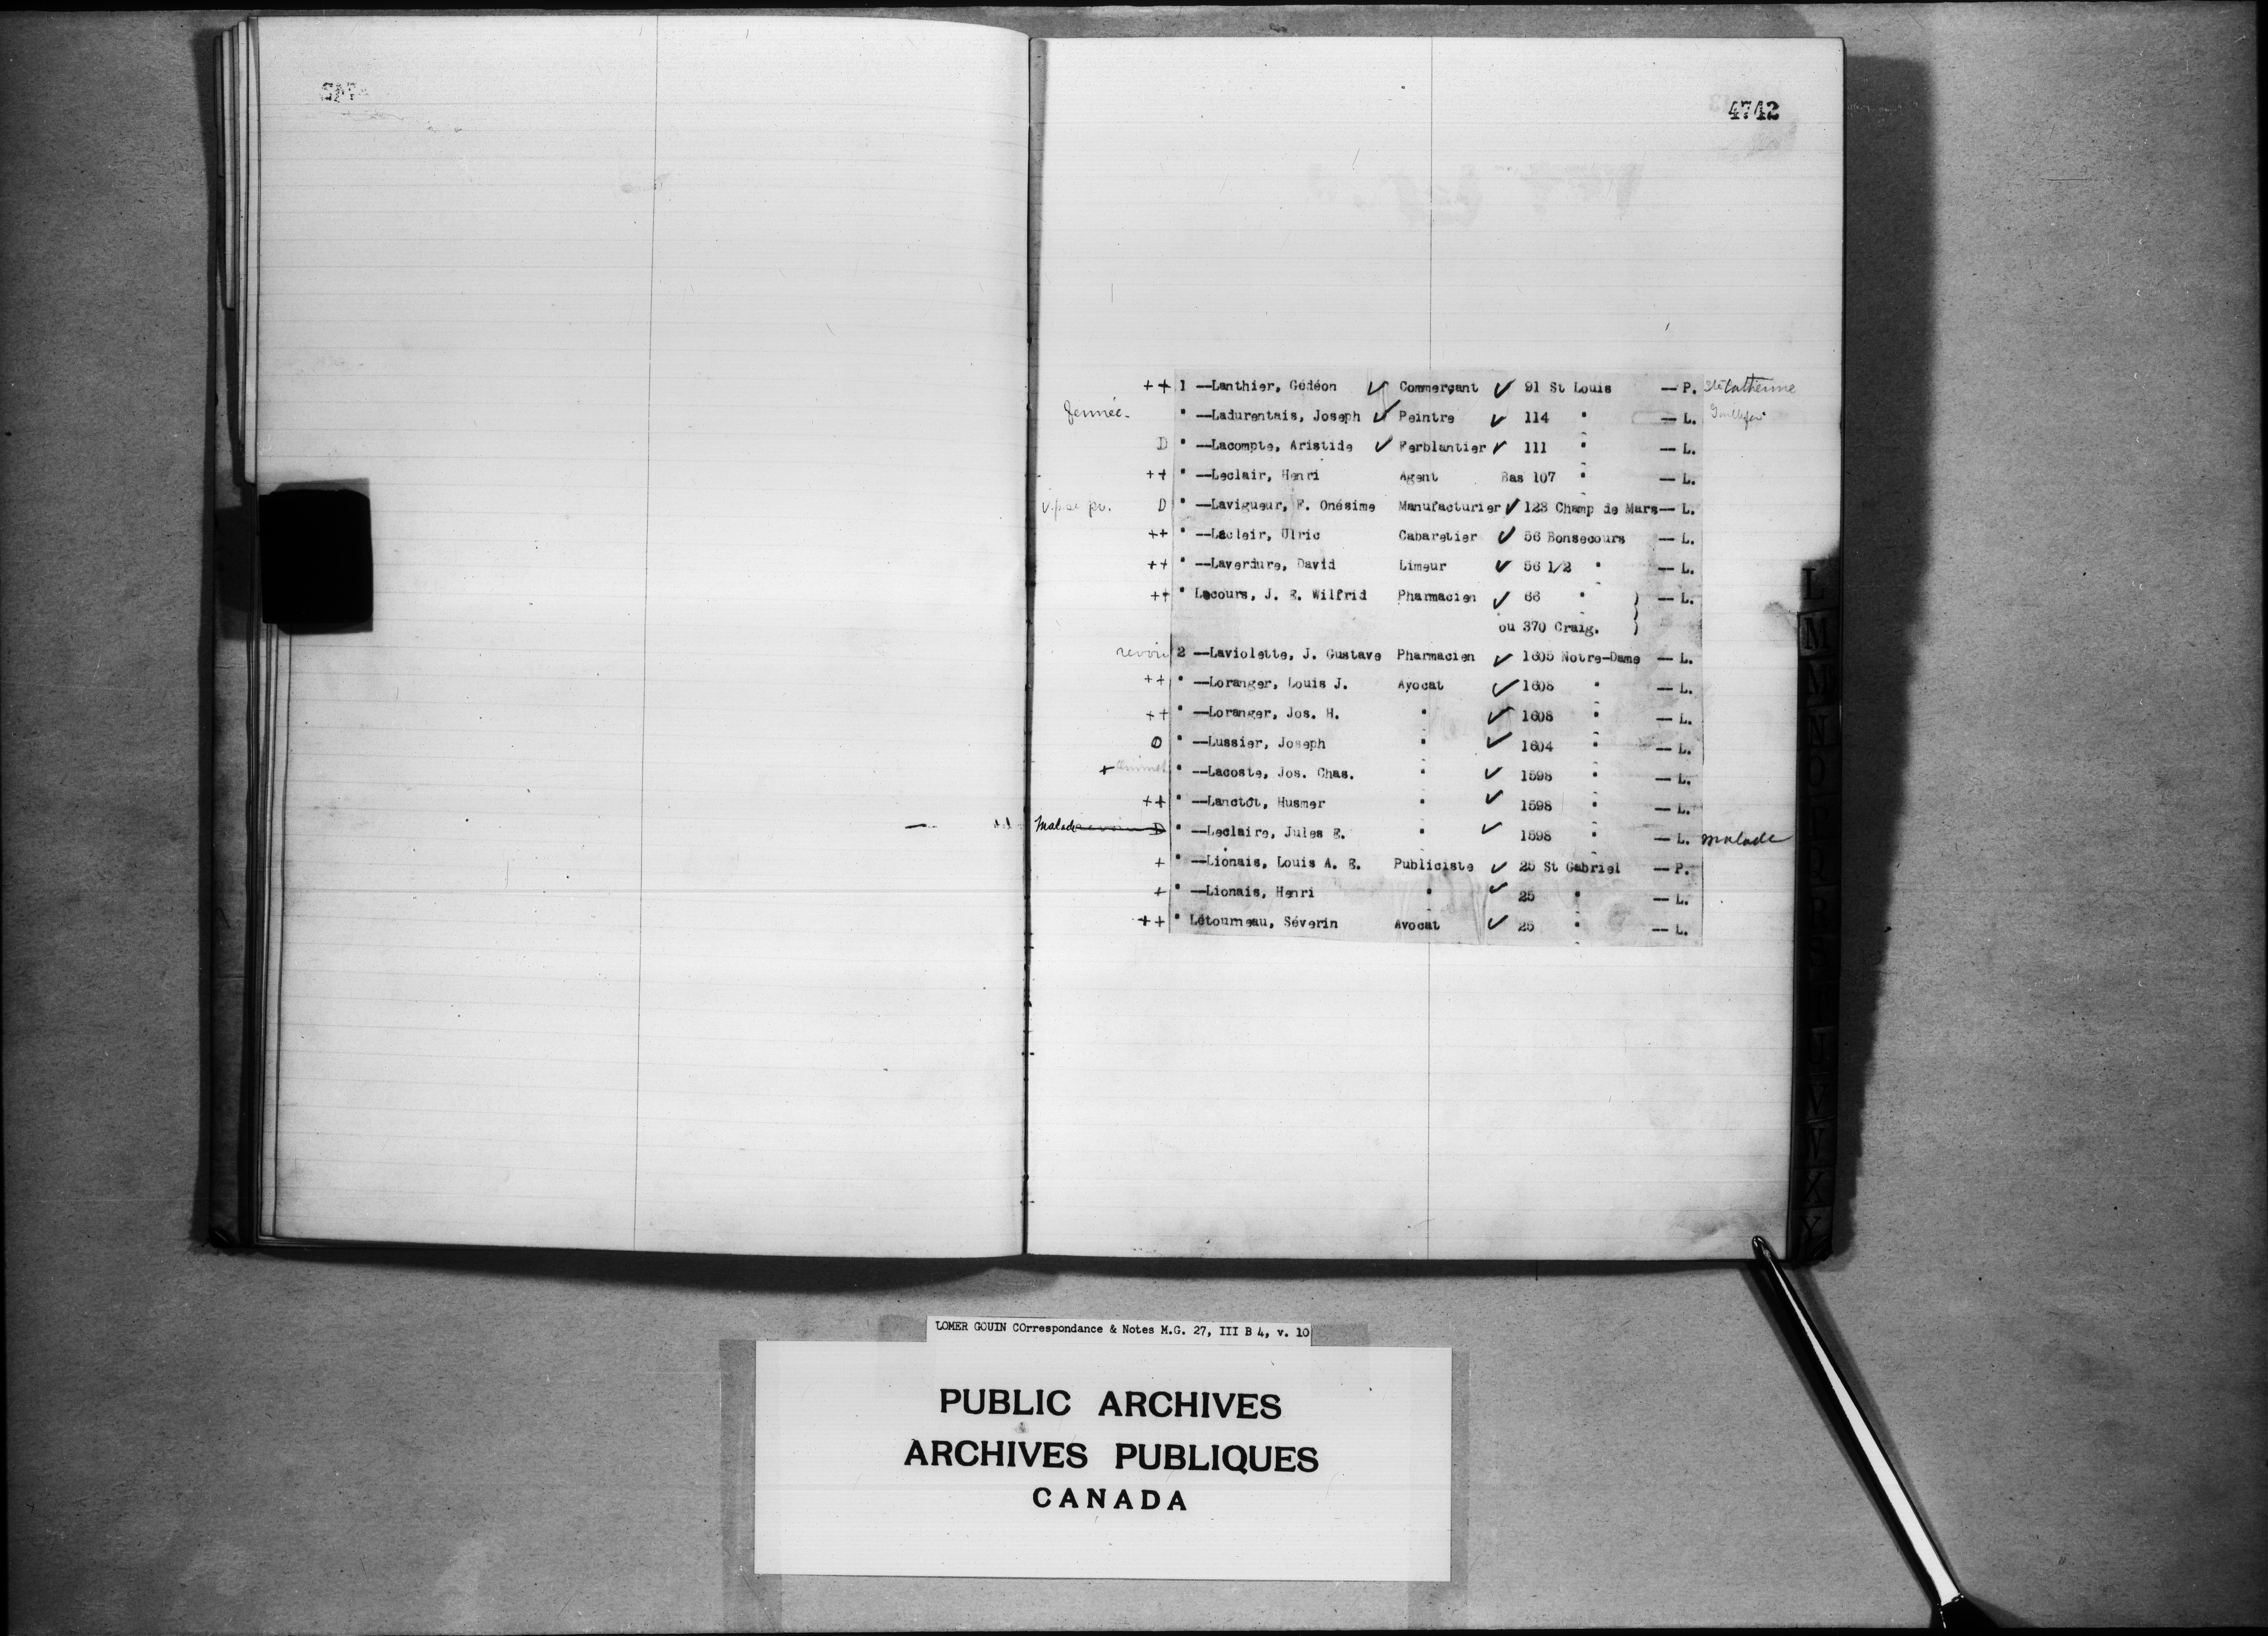 4742
++ 1 —Lanthier, Gédéon ✓ Commerçant ✓ 91 St Louis — P. Ste Catherine
" —Ladurentais, Joseph ✓ Peintre ✓ 114 " — L.
D " —Lacompte, Aristide ✓ Ferblantier ✓ 111 " — L.
++ " —Leclair, Henri Agent Bas 107 " — L.
D " —Lavigueur, F. Onésime Manufacturier ✓ 123 Champ de Mars— L.
++ " —Lecleir, Ulric Cabaretier ✓ 56 Bonsecours — L.
++ " —Laverdure, David Limeur ✓ 56 1/2 " — L.
++ " Lecours, J. E. Wilfrid Pharmacien ✓ 66 " ) — L.
ou 370 Craig. )
revoir 2 —Laviolette, J. Gustave Pharmacien ✓ 1605 Notre-Dame — L.
++ " —Loranger, Louis J. Avocat ✓ 1608 " — L.
++ " —Loranger, Jos. H. " ✓ 1608 " — L.
D " —Lussier, Joseph " ✓ 1604 " — L.
+ " —Lacoste, Jos. Chas. " ✓ 1598 " — L.
++ " —Lanctôt, Husmer " ✓ 1598 " — L.
Malade D " —Leclaire, Jules E. " ✓ 1598 " — L. malade
+ " —Lionais, Louis A. E. Publiciste ✓ 25 St Gabriel — P.
+ " —Lionais, Henri " ✓ 25 " — L.
++ " Létourneau, Séverin Avocat ✓ 25 " — L.
L
M
M
N
O
V
X
Y
LOMER GOUIN COrrespondance & Notes M.G. 27, III B 4, v. 10
PUBLIC ARCHIVES
ARCHIVES PUBLIQUES
CANADA